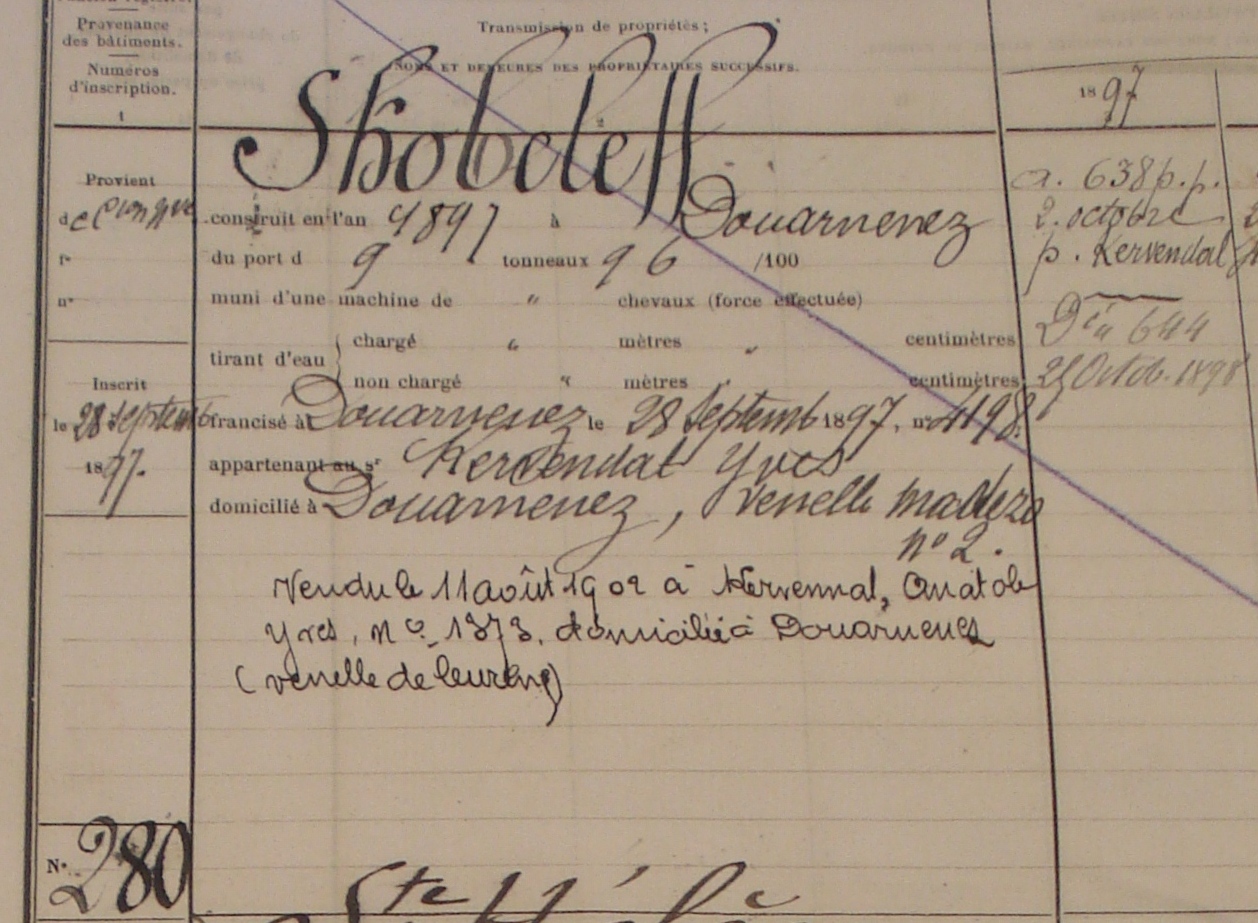 Provenance
des bâtiments.
Numéros
d'inscription.
1
Transmission de propriétés;
NOMS ET DEMEURES DES PROPRIÉTAIRES SUCCESSIFS.
2
1897
Skobeleff
Provient
de
construit en l'an 1897 à Douarnenez
a. 638 p.p.
2. octobre
du port d 9 tonneaux 96 /100
p. Kervendal
f°
n°
muni d'une machine de " chevaux (force effectuée)
tirant d'eau
chargé " mètres " centimètres
non chargé " mètres " centimètres
644
25 Octob. 1898
Inscrit
le 28 septemb
1897.
francisé à Douarnenez le 28 Septemb 1897, n° 4198.
appartenant au sr Kervendal Yves
domicilié à Douarnenez, Venelle
n° 2.
Vendu le 11 août 1902 à Kervennal, Anatole
Yves, n° 1373. domicilié à Douarnenez
(venelle de
N° 280
Ste